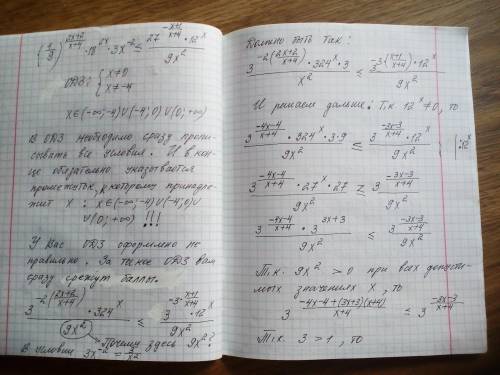 (1/9)^((2x+2)/(x+4)) · 18^(2x) · 3x^(-2) ≤ (27^(-(x+1)/(x+4)) · 12^x)/(9x²)
ОДЗ: { x≠0
x≠-4
x∈(-∞;-4)∪(-4;0)∪(0;+∞)
В ОДЗ необходимо сразу пропи-
сывать все условия. И в кон-
це обязательно указывается
промежуток, к которому принадле-
жит x: x∈(-∞;-4)∪(-4;0)∪
∪(0;+∞) !!!
У Вас ОДЗ оформлено не
правильно. За такое ОДЗ вам
сразу срежут баллы.
(3^(-2((2x+2)/(x+4))) · 324^x)/(9x²) ≤ (3^(-3·(x+1)/(x+4)) · 12^x)/(9x²)
Почему здесь 9x²?
В условии 3x^(-2) = 3/x²
Должно быть так:
(3^(-2((2x+2)/(x+4))) · 324^x · 3)/x² ≤ (3^(-3((x+1)/(x+4))) · 12^x)/(9x²)
И решаем дальше: Т.к. 12^x ≠ 0, то
(3^((-4x-4)/(x+4)) · 324^x · 3·9)/(9x²) ≤ (3^((-3x-3)/(x+4)) · 12^x)/(9x²) | : 12^x
(3^((-4x-4)/(x+4)) · 27^x · 27)/(9x²) ≤ (3^((-3x-3)/(x+4)))/(9x²)
(3^((-4x-4)/(x+4)) · 3^(3x+3))/(9x²) ≤ (3^((-3x-3)/(x+4)))/(9x²)
Т.к. 9x² > 0 при всех допусти-
мых значениях x, то
3^((-4x-4+(3x+3)(x+4))/(x+4)) ≤ 3^((-3x-3)/(x+4))
Т.к. 3 > 1, то